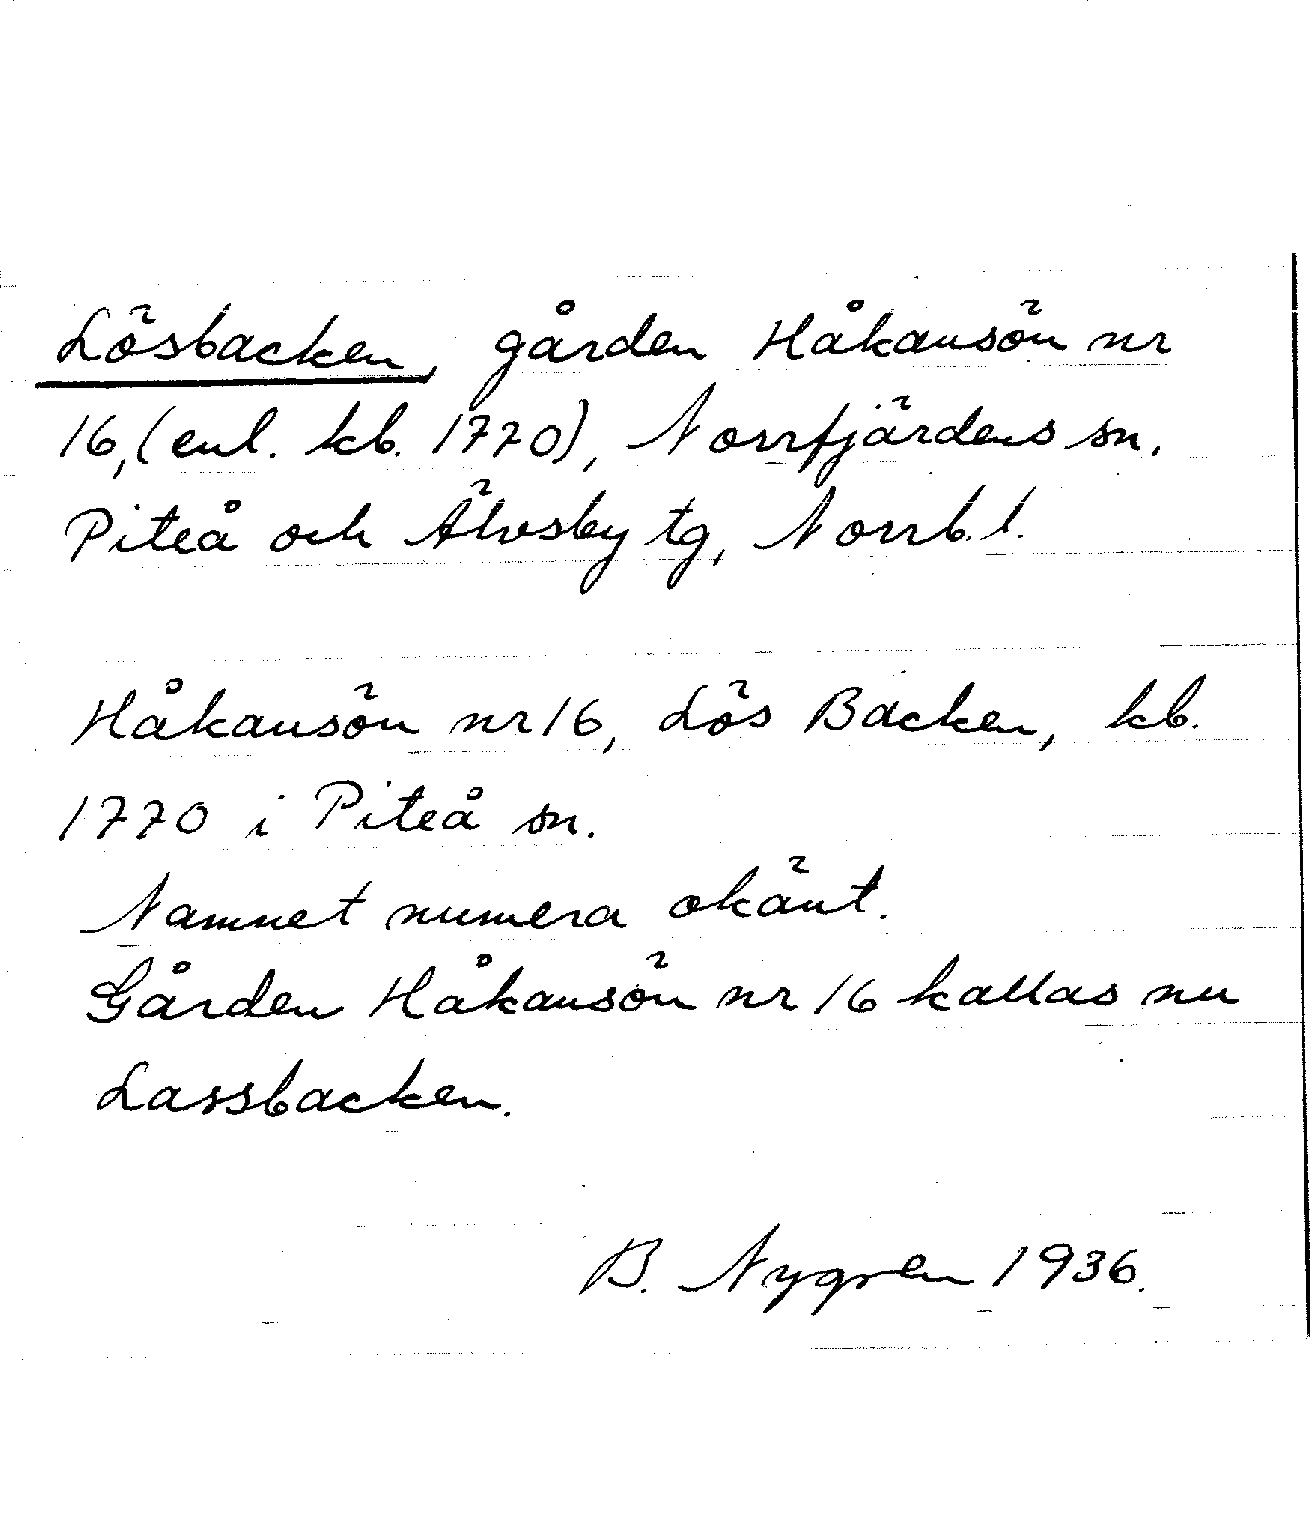 Lösbacken, gården Håkansön nr
16, (enl. kb. 1770), Norrfjärdens sn.
Piteå och Älvsby tg, Norrb. l.
Håkansön nr 16, Lös Backen, kb.
1770 i Piteå sn.
Namnet numera okänt.
Gården Håkansön nr 16 kallas nu
Lassbacken.
B. Nygren 1936.